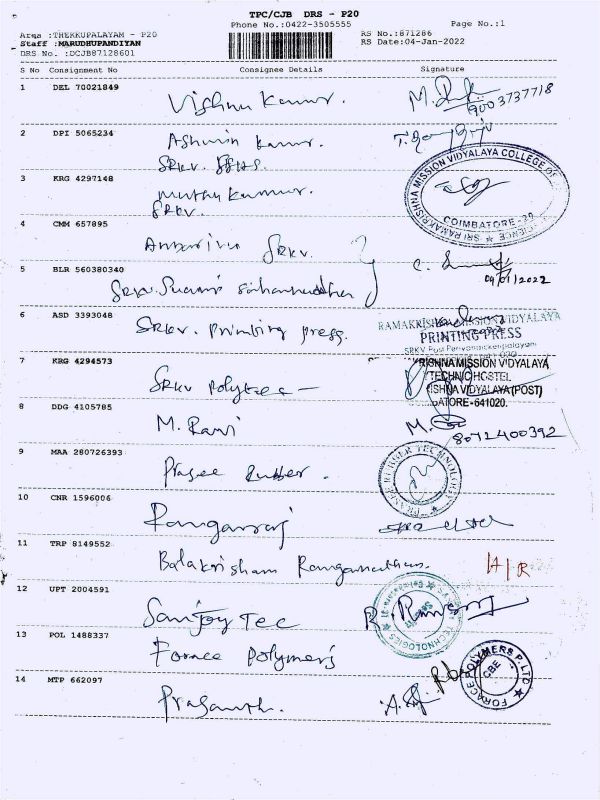 TPC/CJB DRS - P20
Phone No.:0422-3505555
Page No.:1
Area :THEKKUPALAYAM - P20
Staff :MARUDHUPANDIYAN
DRS No. :DCJB87128601
RS No.:871286
RS Date:04-Jan-2022
S No Consignment No Consignee Details Signature
1 DEL 70021849 Vishnu Kumar.
9003737718
2 DPI 5065234 Ashwin Kumar.
SRKV.
3 KRG 4297148 Muthu Kumar.
SRKV.
SRI RAMAKRISHNA MISSION VIDYALAYA COLLEGE OF
COIMBATORE-20
4 CMM 657895 SRKV.
5 BLR 560380340 SRKV. Swami
04/01/2022
6 ASD 3393048 SRKV. Printing press.
RAMAKRISHNA MISSION VIDYALAYA
PRINTING PRESS
SRKV Post Periyanaickenpalayam
7 KRG 4294573 SRKV Polytec
RISHNA MISSION VIDYALAYA
TECHNO HOSTEL
ISHNA VIDYALAYA (POST)
BATORE-641020.
8 DDG 4105785 M. Ravi
8072400392
9 MAA 280726393 Prasee Rubber.
PRASEE RUBBER TECHNOLOGY
10 CNR 1596006 Rangaraj
11 TRP 8149552 Balakrisham Ranganathan.
12 UPT 2004591 Sanjoy Tec
TECHNOLOGIES
13 POL 1488337 Forace Polymers
FORACE POLYMERS P. LTD
CBE
14 MTP 662097 Prasanth.